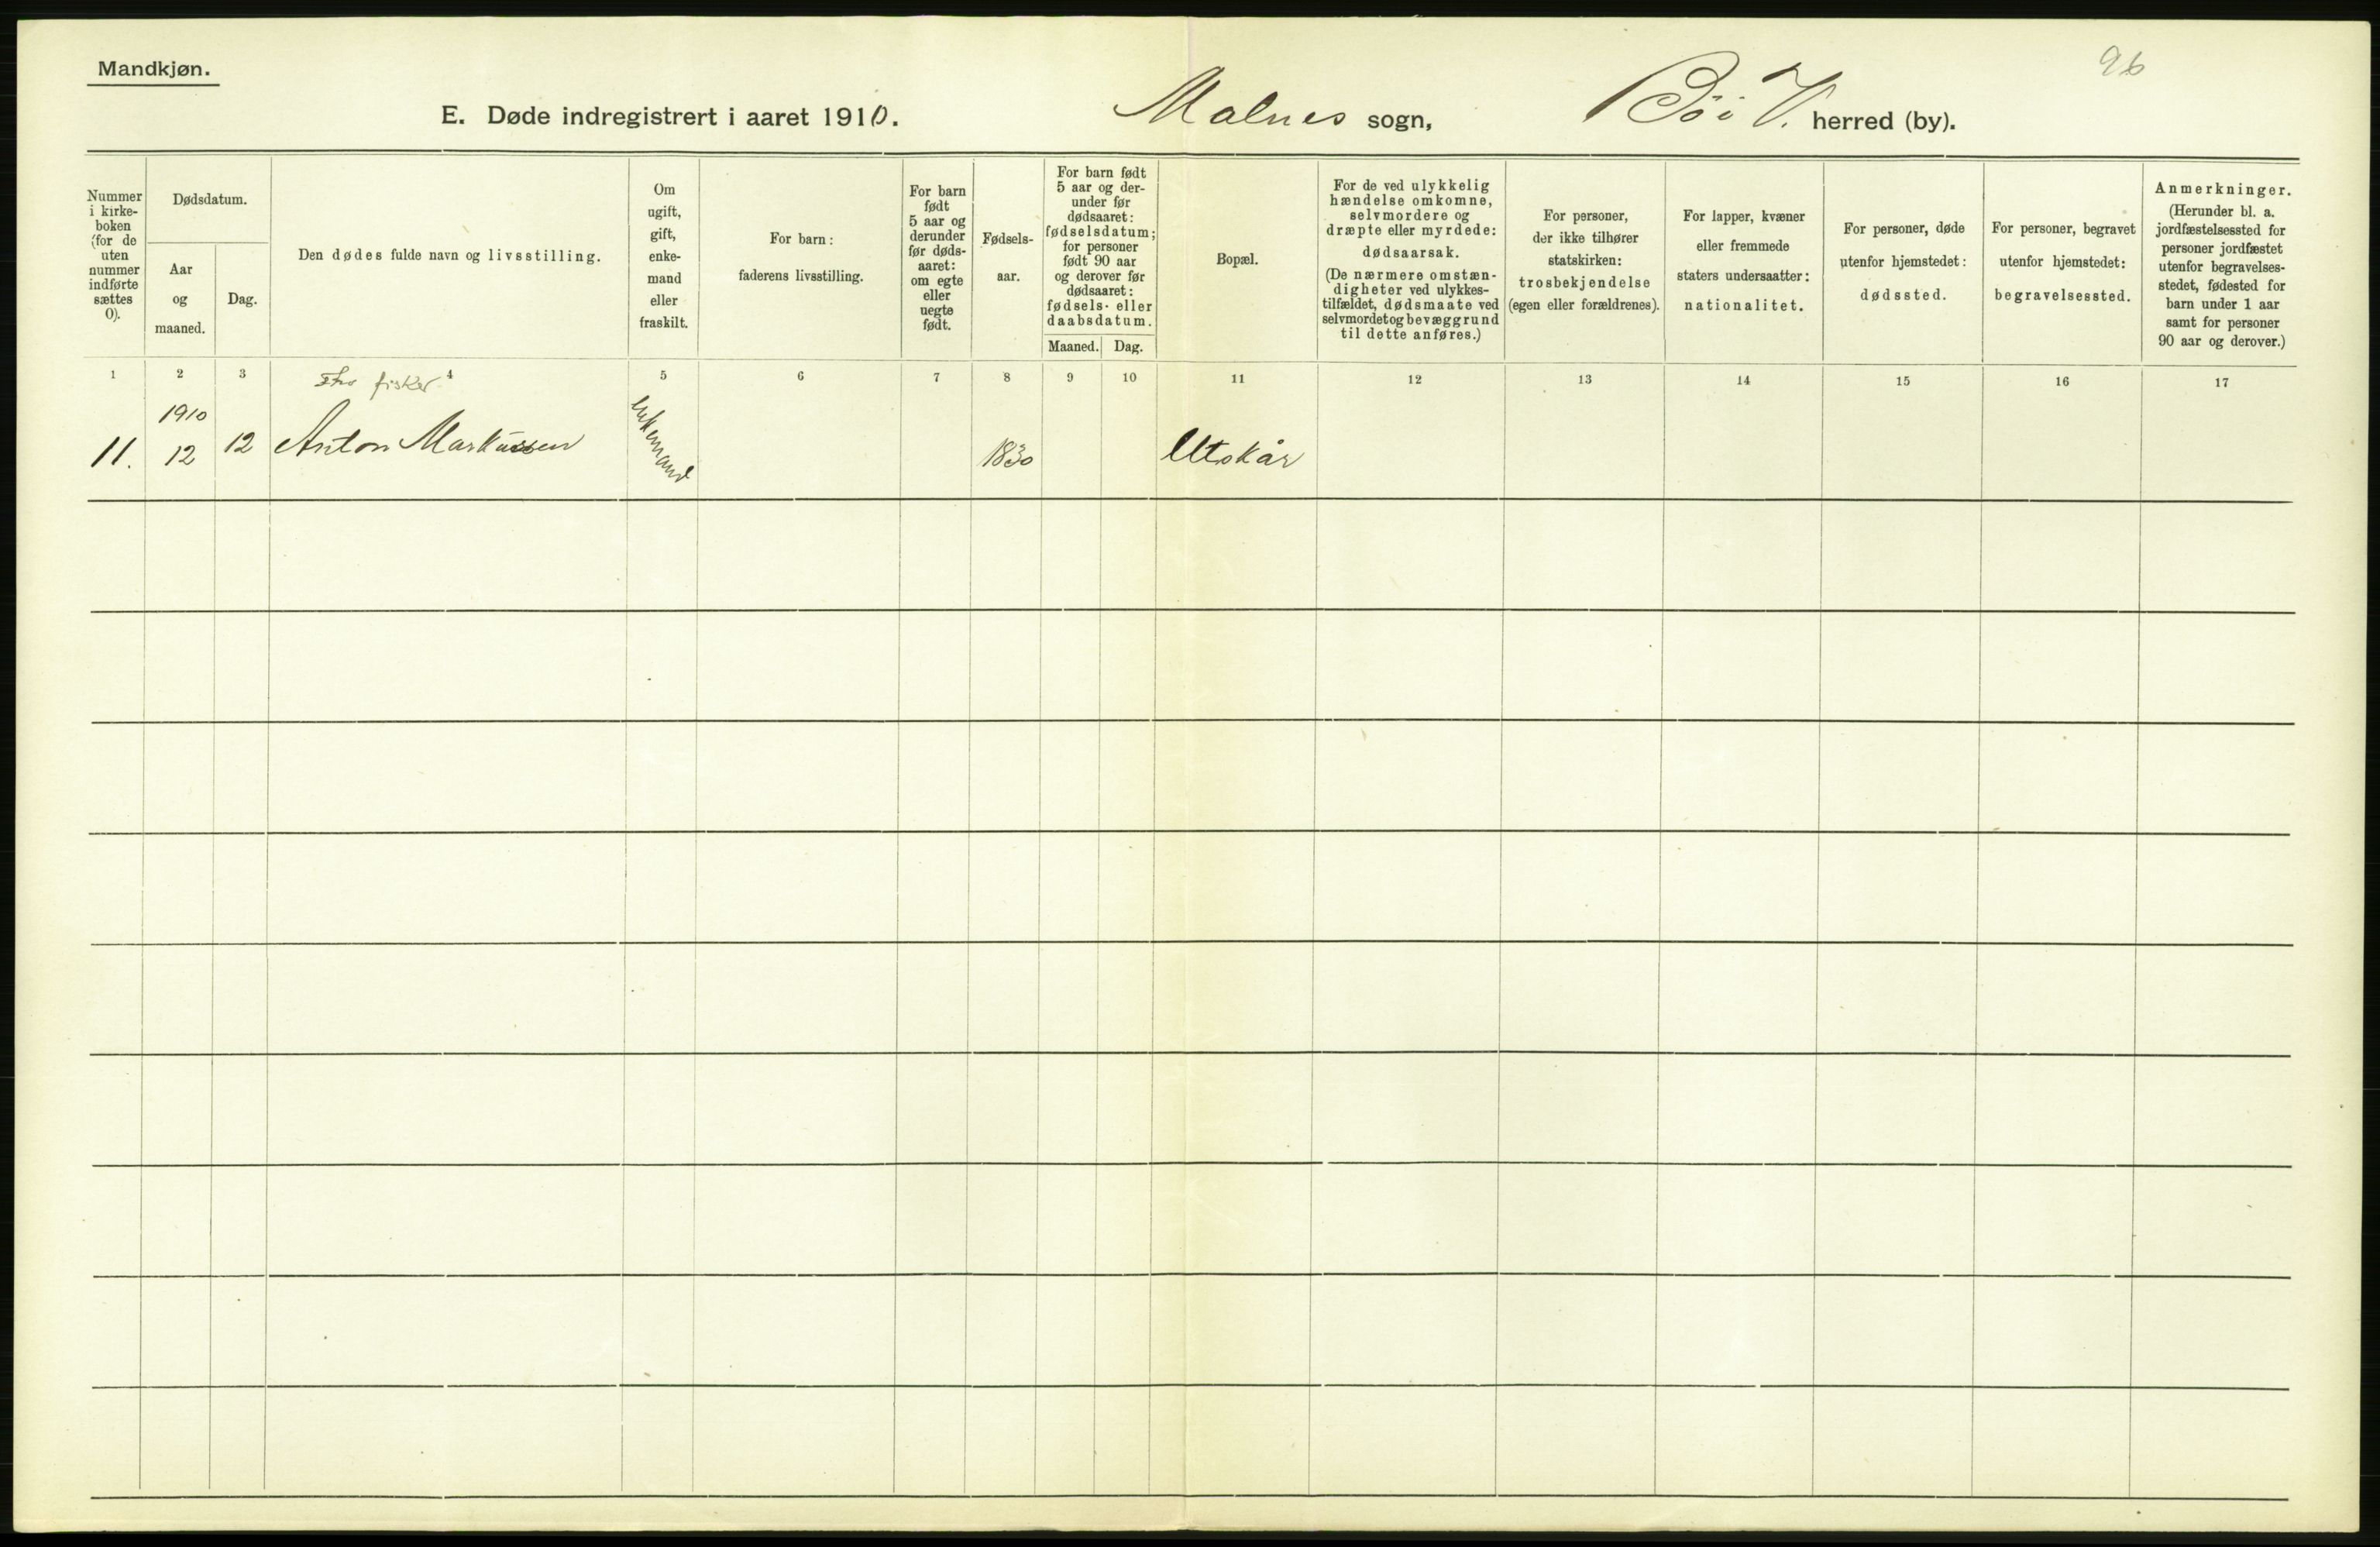 Mandkjøn.
96
E. Døde indregistrert i aaret 1910. Malnes sogn, Bö i V. herred (by).
Nummer
i kirke-
boken
(for de
uten
nummer
indførte
sættes
0).
Dødsdatum.
Aar
og
maaned.
Dag.
Den dødes fulde navn og livsstilling.
Om
ugift,
gift,
enke-
mand
eller
fraskilt.
For barn:
faderens livsstilling.
For barn
født
5 aar og
derunder
før døds-
aaret:
om egte
eller
uegte
født.
Fødsels-
aar.
For barn født
5 aar og der-
under før
dødsaaret:
fødselsdatum;
for personer
født 90 aar
og derover før
dødsaaret:
fødsels- eller
daabsdatum.
Maaned. Dag.
Bopæl.
For de ved ulykkelig
hændelse omkomne,
selvmordere og
dræpte eller myrdede:
dødsaarsak.
(De nærmere omstæn-
digheter ved ulykkes-
tilfældet, dødsmaate ved
selvmordet og bevæggrund
til dette anføres.)
For personer,
der ikke tilhører
statskirken:
trosbekjendelse
(egen eller forældrenes).
For lapper, kvæner
eller fremmede
staters undersaatter:
nationalitet.
For personer, døde
utenfor hjemstedet:
dødssted.
For personer, begravet
utenfor hjemstedet:
begravelsessted.
Anmerkninger.
(Herunder bl. a.
jordfæstelsessted for
personer jordfæstet
utenfor begravelses-
stedet, fødested for
barn under 1 aar
samt for personer
90 aar og derover.)
1 2 3 4 5 6 7 8 9 10 11 12 13 14 15 16 17
fisker
1910
11. 12 12 Anton Markussen enkemand 1830 Utskår